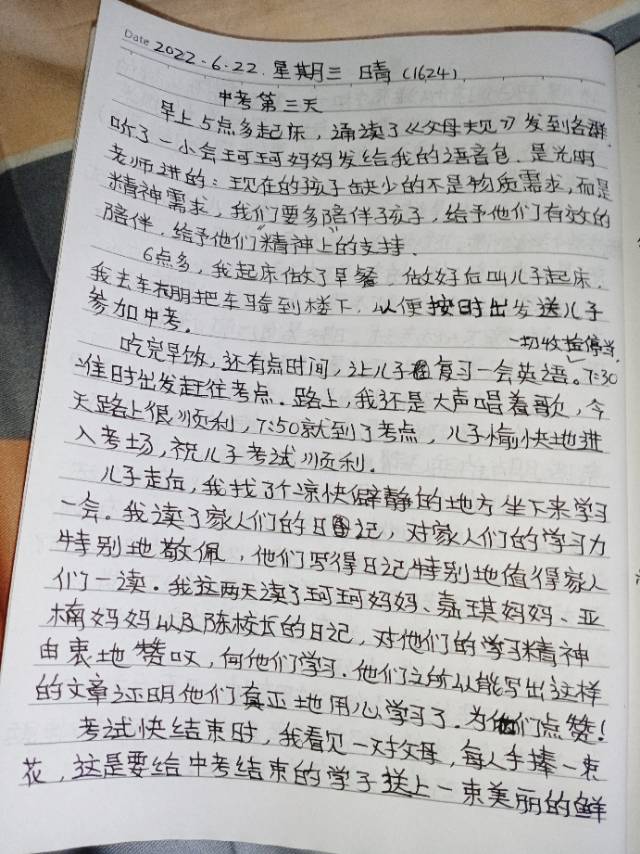 Date 2022.6.22.星期三 晴(1624)
中考第三天
早上5点多起床,诵读了《父母规》发到各群.
听了一小会珂珂妈妈发给我的语音包.是光明
老师讲的:现在的孩子缺少的不是物质需求,而是
精神需求,我们要多陪伴孩子,给予他们有效的
陪伴,给予他们"精神上"的支持.
6点多,我起床做了早餐,做好后叫儿子起床.
我去车棚把车骑到楼下.以便按时出发送儿子
参加中考.
一切收捡停当.
吃完早饭,还有点时间,让儿子复习一会英语。7:30
准时出发赶往考点.路上,我还是大声唱着歌,今
天路上很顺利,7:50就到了考点,儿子愉快地进
入考场,祝儿子考试顺利.
儿子走后,我找了个凉快僻静的地方坐下来学习
一会.我读了家人们的日记,对家人们的学习力
特别地敬佩,他们写得日记特别地值得家人
们一读.我这两天读了珂珂妈妈、嘉琪妈妈、亚
楠妈妈以及陈校长的日记,对他们的学习精神
由衷地赞叹,向他们学习.他们之所以能写出这样
的文章证明他们真正地用心学习了.为他们点赞!
考试快结束时,我看见一对父母,每人手捧一束
花,这是要给中考结束的学子送上一束美丽的鲜